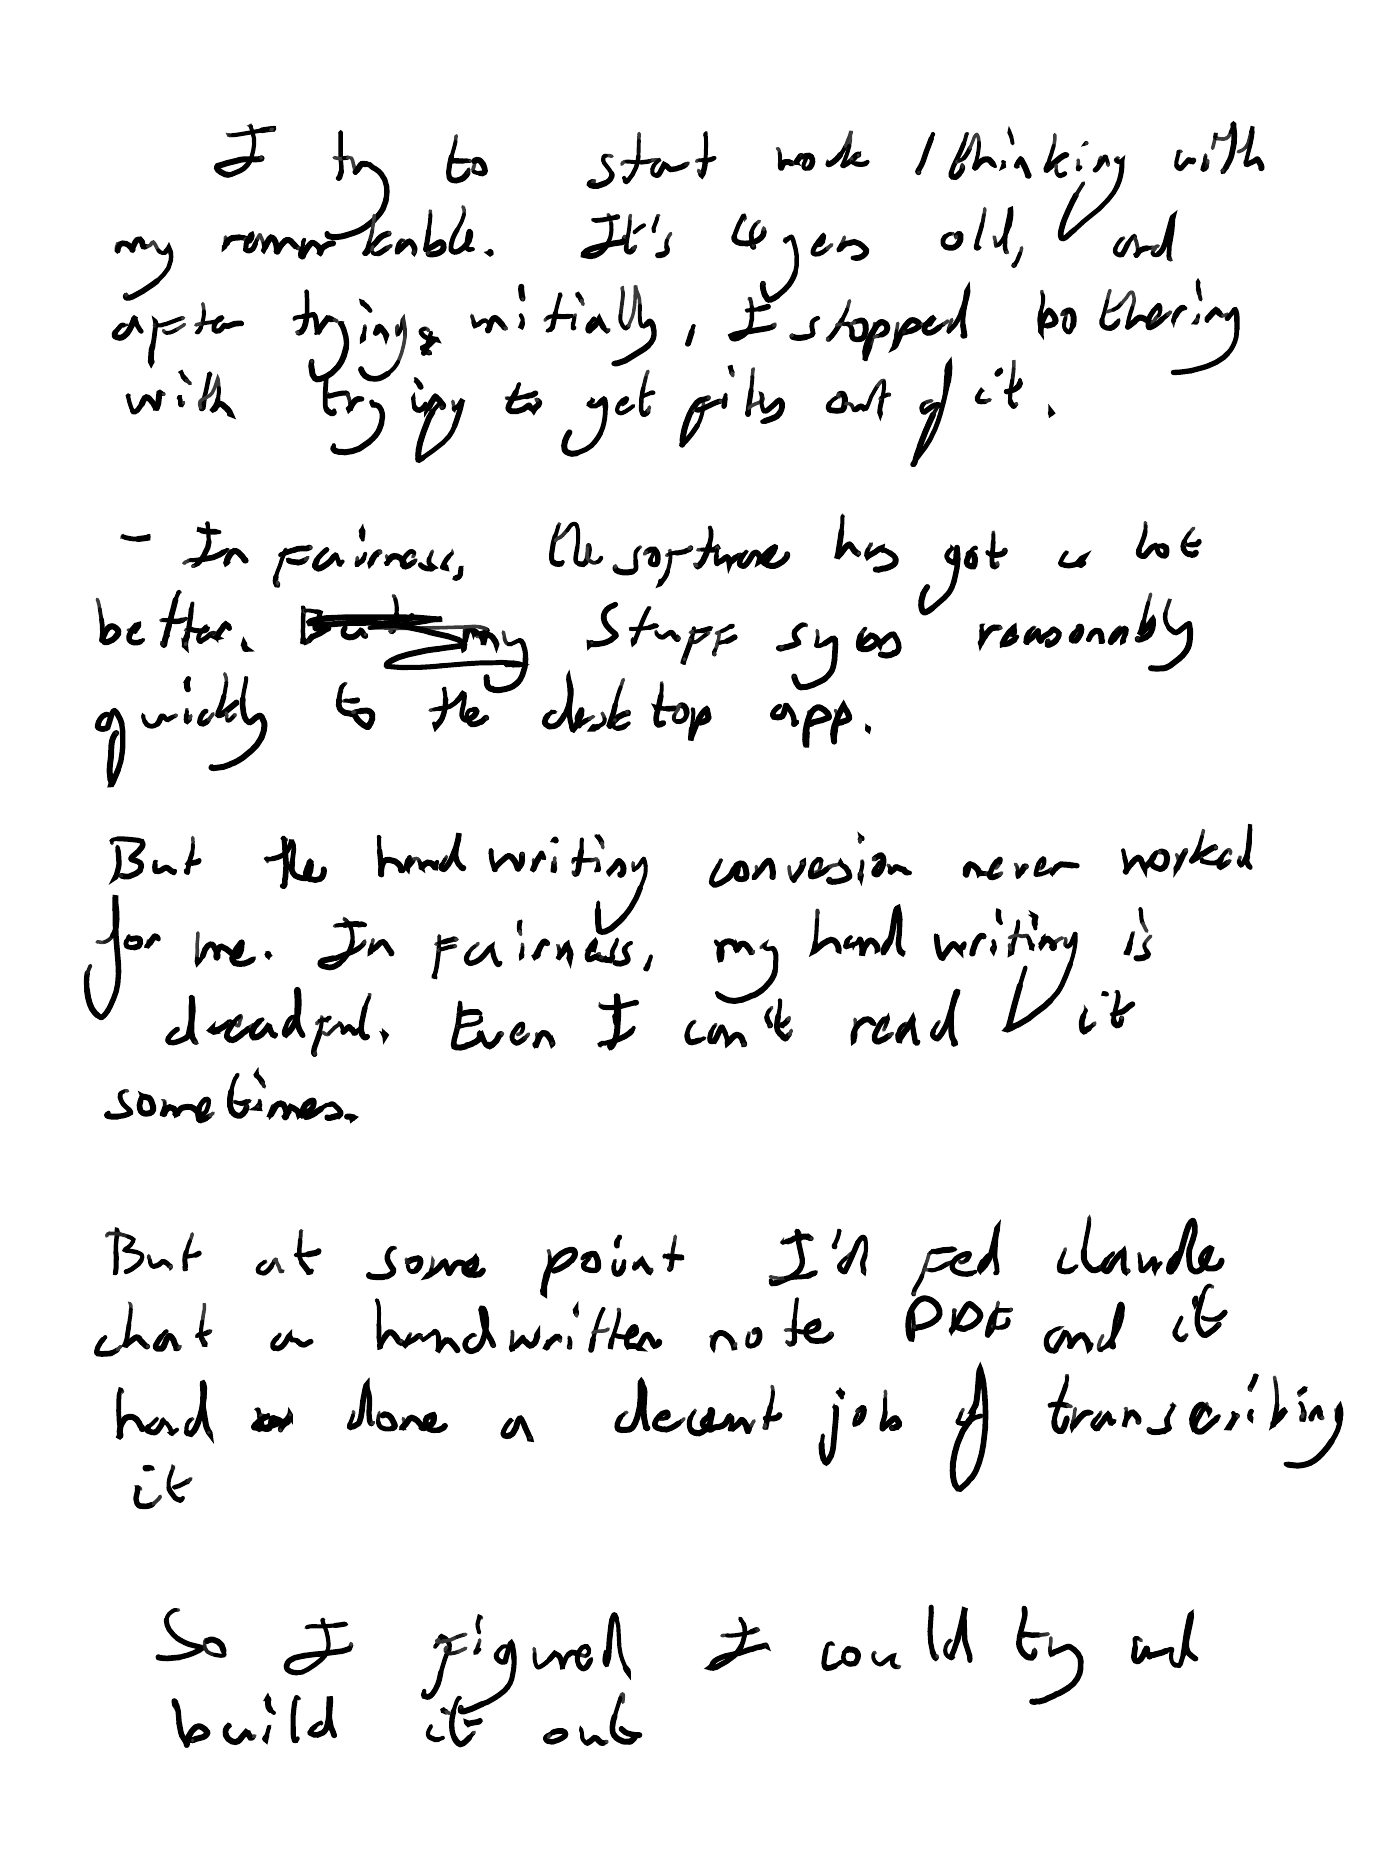 I try to start work / thinking with
my remarkable. It's 4 years old, and
after trying initially, I stopped bothering
with trying to get files out of it.
- In fairness, the software has got a lot
better. But my stuff syncs reasonably
quickly to the desktop app.
But the handwriting conversion never worked
for me. In fairness, my handwriting is
dreadful. Even I can't read it
sometimes.
But at some point I'd fed claude
chat a handwritten note PDF and it
had done a decent job of transcribing
it
So I figured I could try and
build it out